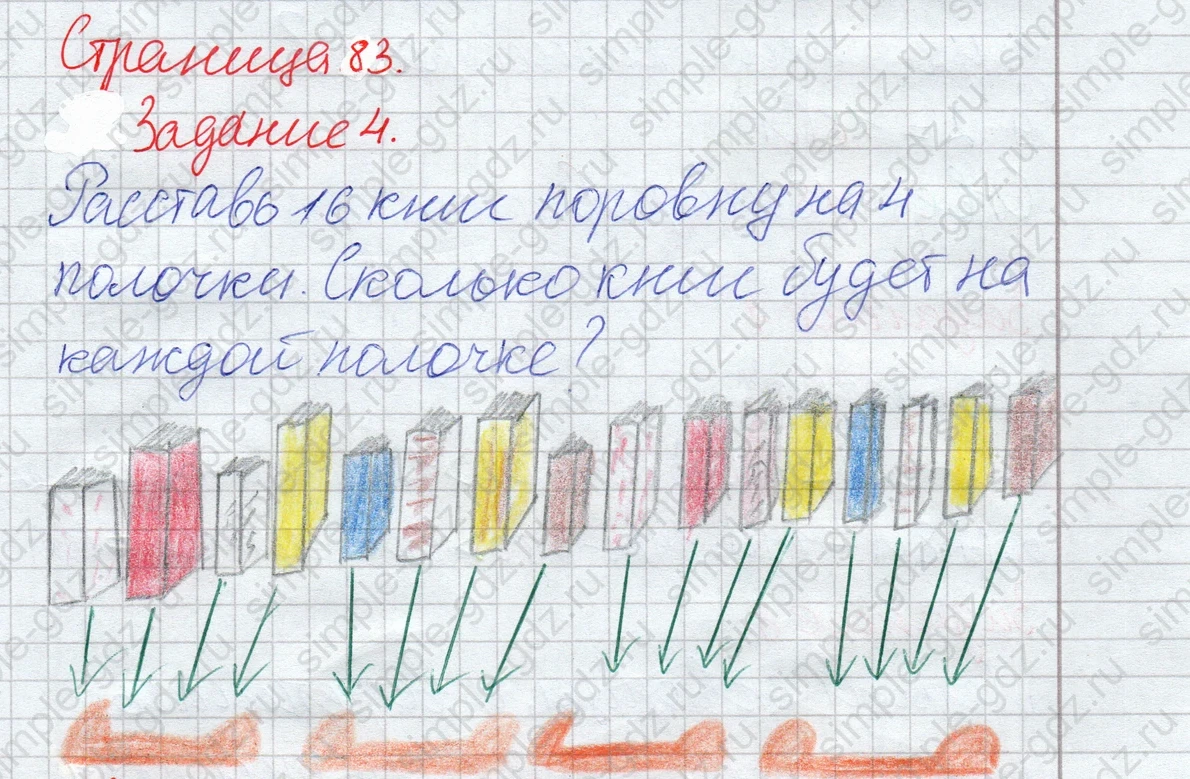 Страница 83.
Задание 4.
Расставь 16 книг поровну на 4
полочки. Сколько книг будет на
каждой полочке?
simple-gdz.ru